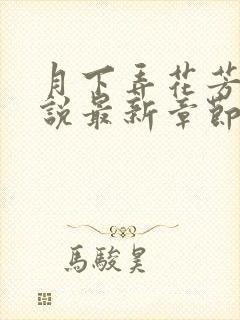 月下弄花芳
說最新章節
馬駿昊